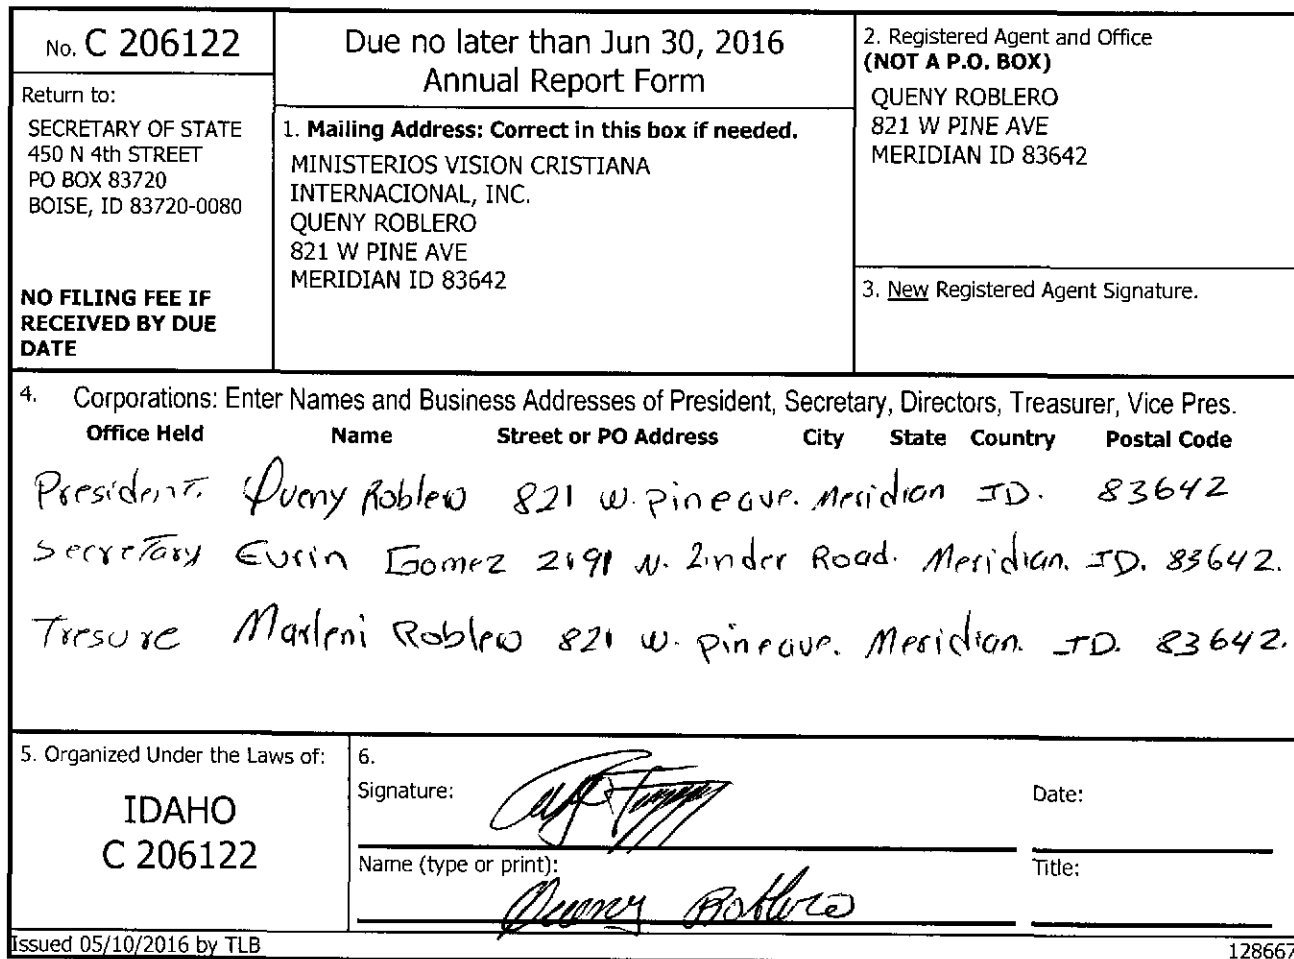 No. C 206122
Return to:
SECRETARY OF STATE
450 N 4th STREET
PO BOX 83720
BOISE, ID 83720-0080
NO FILING FEE IF
RECEIVED BY DUE
DATE
Due no later than Jun 30, 2016
Annual Report Form
1. Mailing Address: Correct in this box if needed.
MINISTERIOS VISION CRISTIANA
INTERNACIONAL, INC.
QUENY ROBLERO
821 W PINE AVE
MERIDIAN ID 83642
2. Registered Agent and Office
(NOT A P.O. BOX)
QUENY ROBLERO
821 W PINE AVE
MERIDIAN ID 83642
3. New Registered Agent Signature.
4. Corporations: Enter Names and Business Addresses of President, Secretary, Directors, Treasurer, Vice Pres.
Office Held Name Street or PO Address City State Country Postal Code
President. Queny Roblero 821 w. pine ave. Meridian ID. 83642
Secretary Eurin Gomez 2191 N. Linder Road. Meridian. ID. 83642.
Tresure Marleni Roblero 821 w. pine ave. Meridian. ID. 83642.
5. Organized Under the Laws of:
IDAHO
C 206122
6.
Signature:
Date:
Name (type or print):
Queny Roblero
Title:
Issued 05/10/2016 by TLB
128667